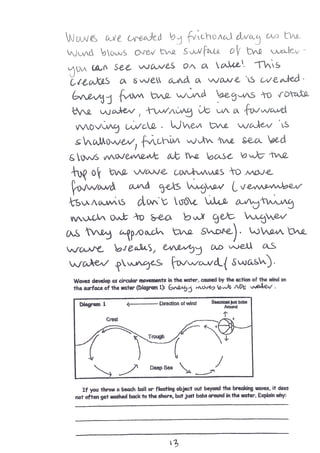 Waves are created by frictional drag as the
wind blows over the surface of the water -
you can see waves on a lake! This
creates a swell and a wave is created.
Energy from the wind begins to rotate
the water, turning it in a forward
moving circle. When the water is
shallower, friction with the sea bed
slows movement at the base but the
top of the wave continues to move
forward and gets higher (remember
tsunamis don't look like anything
much out to sea but get higher
as they approach the shore). When the
wave breaks, energy as well as
water plunges forward (swash).
Waves develop as circular movements in the water, caused by the action of the wind on
the surface of the water (Diagram 1): Energy moves but not water.
Diagram 1
Direction of wind
Crest
Trough
Deep Sea
If you threw a beach ball or floating object out beyond the breaking waves, it does
not often get washed back to the shore, but just bobs around in the water. Explain why:
13